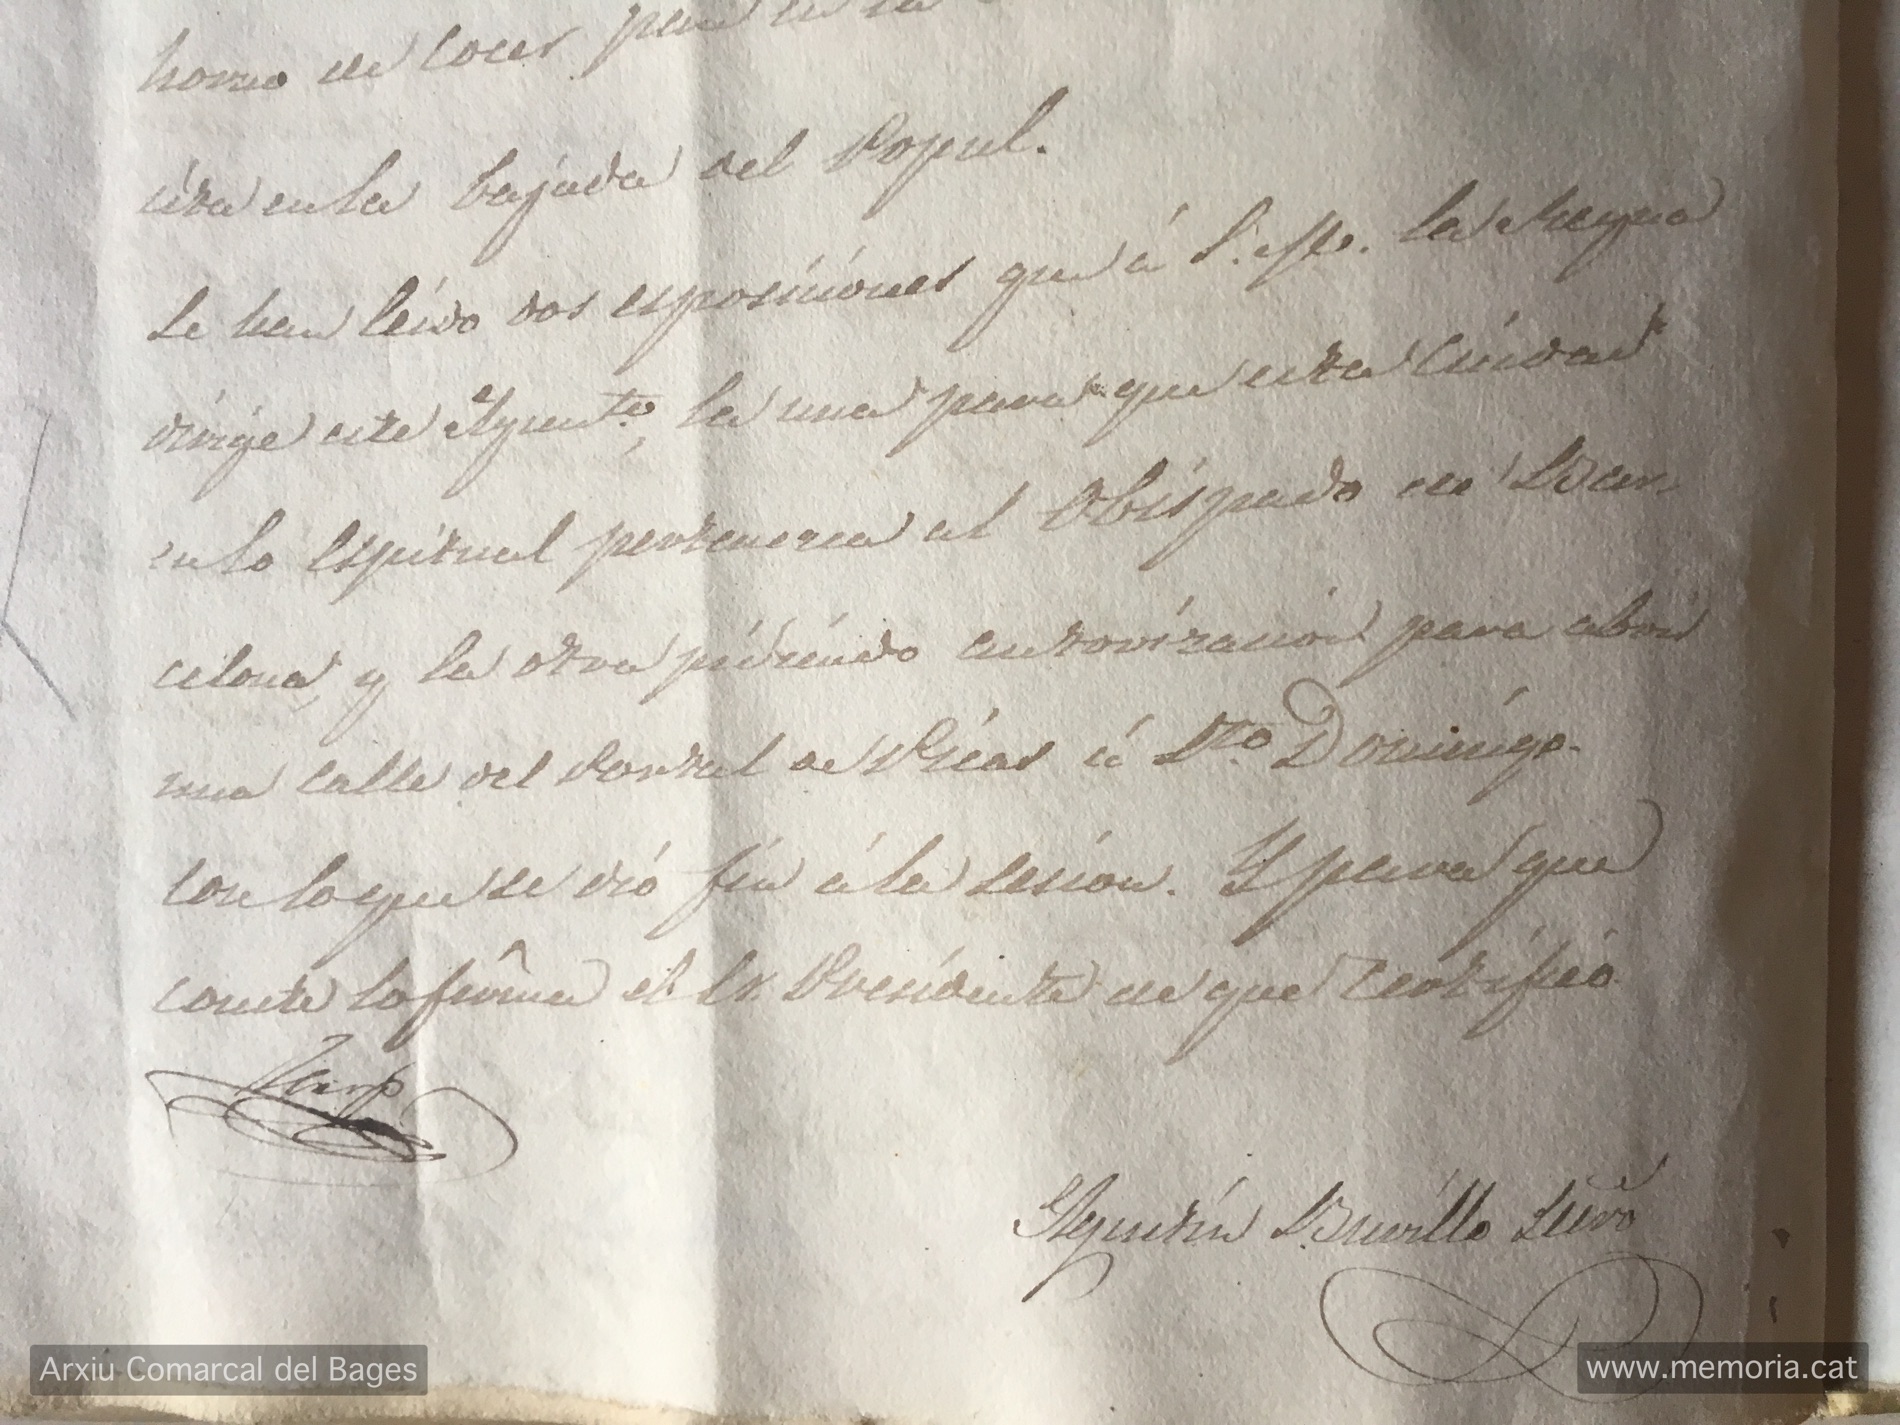 horno de cocer pan en la
cita en la bajada del Popul.
Se han leido dos esposiciones que á S. M. la Reyna
dirige este Ayunto, la una para que esta Ciudad
en lo espiritual pertenezca al Obispado de Bar-
celona, y la otra pidiendo autorizacion para abrir
una calle del Portal de Picas á Sto. Domingo.
con lo que se dió fin á la sesion. Y para que
conste lo firma el Sr. Presidente de que certifico
Agustin Burillo Srio
Arxiu Comarcal del Bages
www.memoria.cat